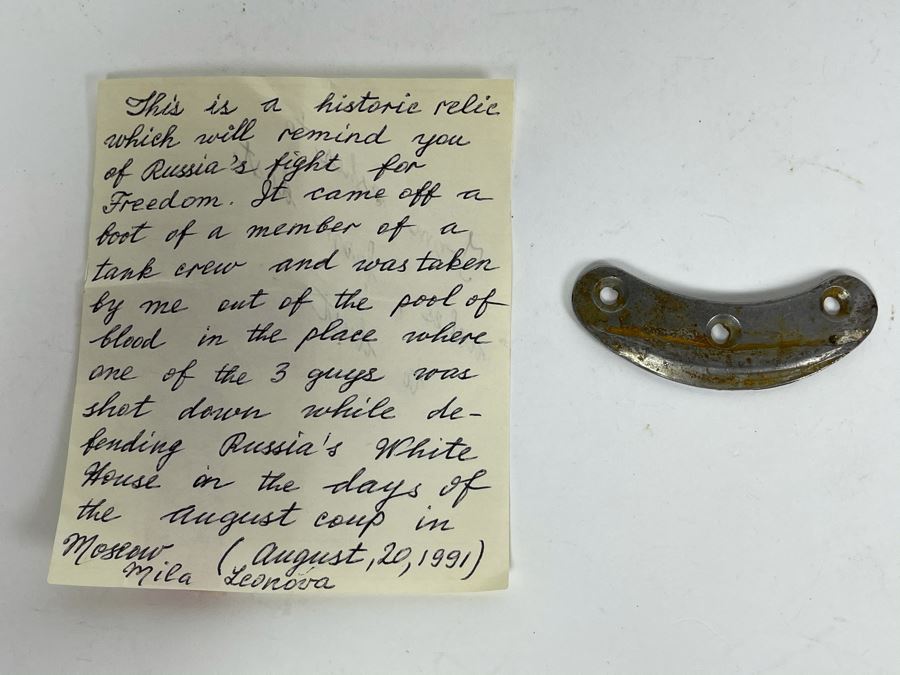 This is a historic relic
which will remind you
of Russia's fight for
Freedom. It came off a
boot of a member of a
tank crew and was taken
by me out of the pool of
blood in the place where
one of the 3 guys was
shot down while de-
fending Russia's White
House in the days of
the August coup in
Moscow (August, 20, 1991)
Mila Leonova